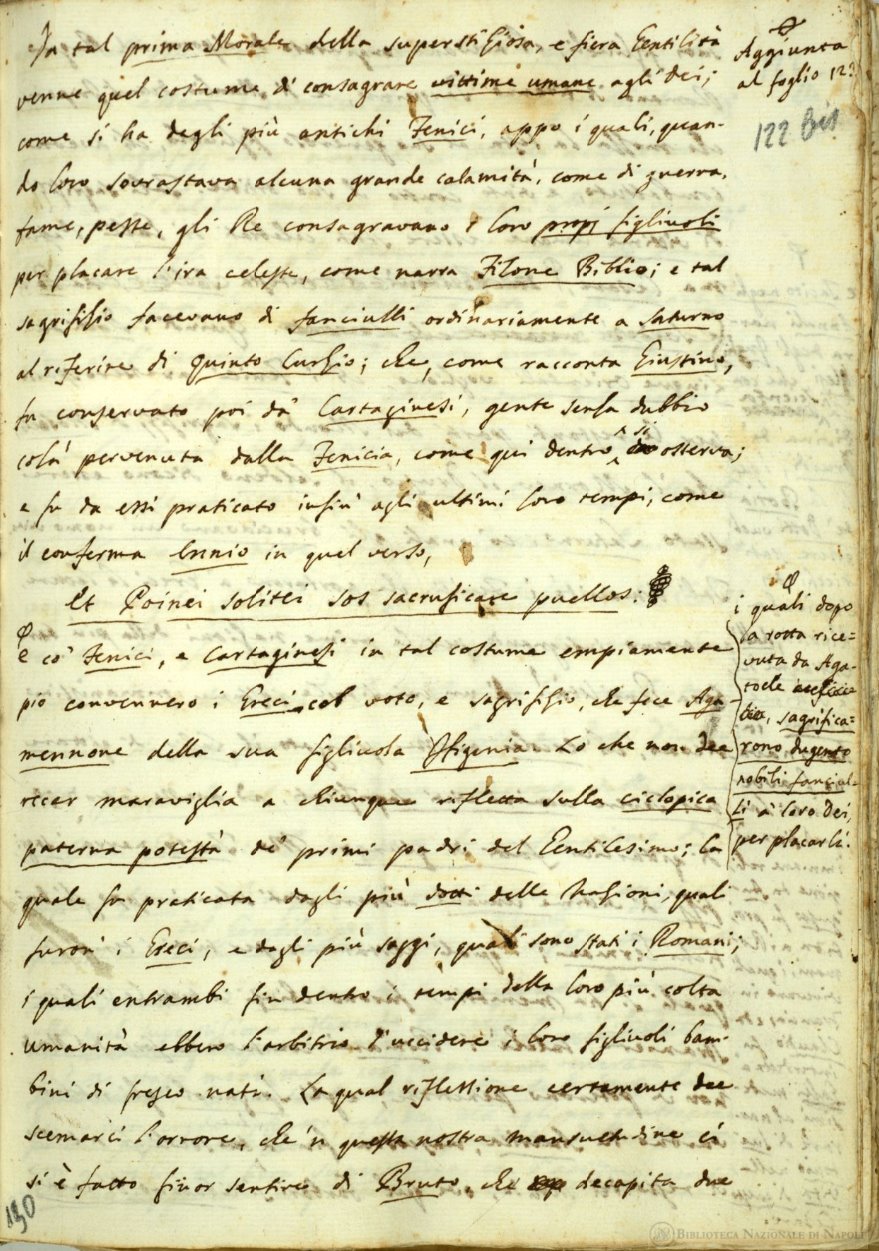 In tal prima Morale della superstiziosa, e fiera Gentilità
venne quel costume di consagrare vittime umane agli dei;
come si ha degli più antichi Fenici, appo i quali, quan-
do loro sovrastava alcuna grande calamità, come di guerra,
fame, peste, gli Re consagravano i loro propj figliuoli
per placare l'ira celeste, come narra Filone Biblio; e tal
sagrifizio facevano di fanciulli ordinariamente a Saturno
al riferire di Quinto Curzio; che, come racconta Giustino,
fu conservato poi da' Cartaginesi, gente senza dubbio
colà pervenuta dalla Fenicia, come qui dentro si osserva;
e fu da essi praticato infin' agli ultimi loro tempi, come
il conferma Ennio in quel verso,
Et Poinei solitei sos sacruficare puellos:
e co' Fenici, e Cartaginesi in tal costume empiamente
pio convennero i Greci col voto, e sagrifizio, che fece Aga-
mennone della sua figliuola Ifigenia. Lo che non dee
recar maraviglia a chiunque rifletta sulla ciclopica
paterna potestà de' primi padri del Gentilesimo; la
quale fu praticata dagli più dotti delle Nazioni, quali
furon' i Greci, e dagli più saggi, quali sono stati i Romani;
i quali entrambi fin dentro i tempi della loro più colta
umanità ebbero l'arbitrio d'uccidere i loro figliuoli bam-
bini di fresco nati. La qual riflessione certamente dee
scemarci l'orrore, che 'n questa nostra mansuetudine ci
si è fatto finor sentire di Bruto, che decapita due
Aggiunta
al foglio 12
122 bis
i quali dopo
la rotta rice=
vuta da Aga-
tocle
sagrifica=
rono dugento
nobili fanciul-
li a' loro dei,
per placarli.
130
BIBLIOTECA NAZIONALE DI NAPOLI